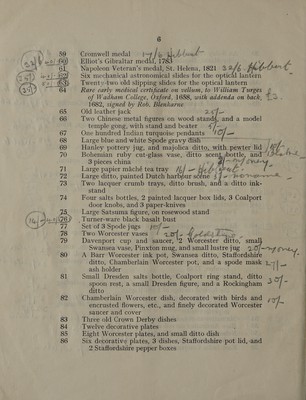 6
59 Cromwell medal
60 Elliot's Gibraltar medal, 1783
61 Napoleon Veteran's medal, St. Helena, 1821
62 Six mechanical astronomical slides for the optical lantern
63 Twenty-two old slipping slides for the optical lantern
64 Rare early medical certificate on vellum, to William Turges
of Wadham College, Oxford, 1658, with addenda on back,
1682, signed by Rob. Blankarne
65 Old leather jack
66 Two Chinese metal figures on wood stands, and a model
temple gong, with stand and beater
67 One hundred Indian turquoise pendants
68 Large blue and white Spode gravy dish
69 Hanley pottery jug, and majolica ditto, with pewter lid
70 Bohemian ruby cut-glass vase, ditto scent bottle, and
3 pieces china
71 Large papier mâché tea tray
72 Large ditto, painted Dutch harbour scene
73 Two lacquer crumb trays, ditto brush, and a ditto ink-
stand
74 Four salts bottles, 2 painted lacquer box lids, 3 Coalport
door knobs, and 3 paper-knives
75 Large Satsuma figure, on rosewood stand
76 Turner-ware black basalt bust
77 Set of 3 Spode jugs
78 Two Worcester vases
79 Davenport cup and saucer, 2 Worcester ditto, small
Swansea vase, Pinxton mug, and small lustre jug
80 A Barr Worcester ink pot, Swansea ditto, Staffordshire
ditto, Chamberlain Worcester pot, and a spode mask
ash holder
81 Small Dresden salts bottle, Coalport ring stand, ditto
spoon rest, a small Dresden figure, and a Rockingham
ditto
82 Chamberlain Worcester dish, decorated with birds and
encrusted flowers, etc., and finely decorated Worcester
saucer and cover
83 Three old Crown Derby dishes
84 Twelve decorative plates
85 Eight Worcester plates, and small ditto dish
86 Six decorative plates, 3 dishes, Staffordshire pot lid, and
2 Staffordshire pepper boxes